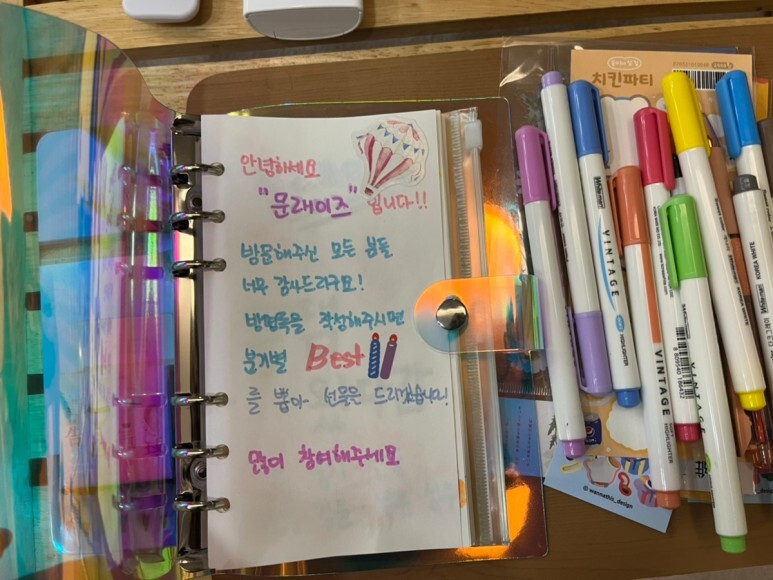 안녕하세요
"문래이즈" 입니다!!
방문해주신 모든 분들
너무 감사드리구요!
방명록을 작성해주시면
분기별 Best
를 뽑아 선물을 드리겠습니다!
많이 참여해주세요
치킨파티
VINTAGE
HIGHLIGHTER
VINTAGE
HIGHLIGHTER
VINTAGE
HIGHLIGHTER
@ wannathis_design